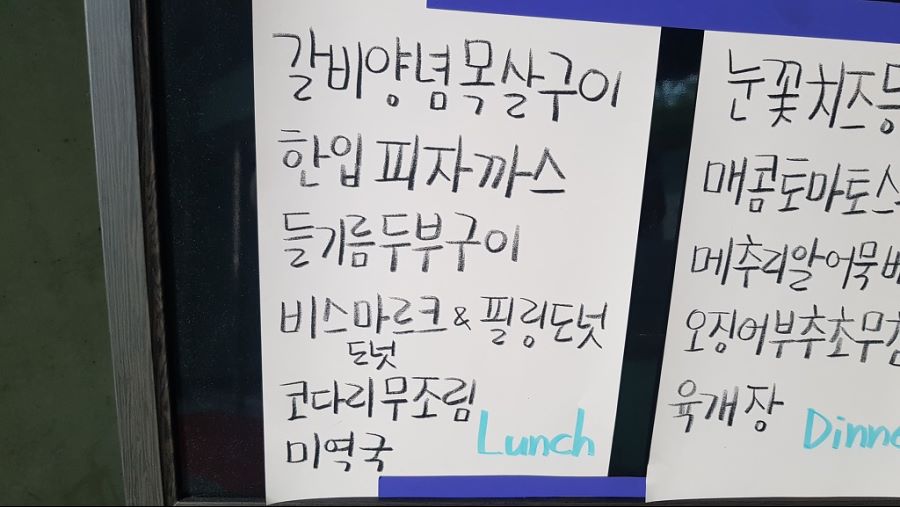 갈비양념목살구이
한입피자까스
들기름두부구이
비스마르크 & 필링도넛
도넛
코다리무조림
미역국
Lunch
눈꽃치즈
매콤토마토
메추리알어묵
오징어부추초무
육개장